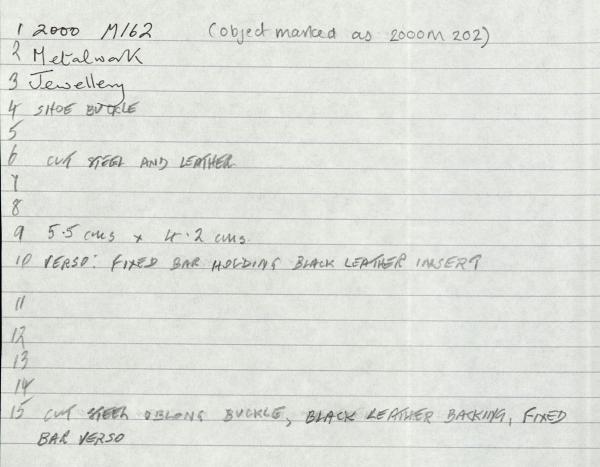 1 2000 M162 (object marked as 2000M 202)
2 Metalwork
3 Jewellery
4 SHOE BUCKLE
5
6 CUT STEEL AND LEATHER
7
8
9 5.5 cms x 4.2 cms
10 VERSO: FIXED BAR HOLDING BLACK LEATHER INSERT
11
12
13
14
15 CUT STEEL OBLONG BUCKLE, BLACK LEATHER BACKING, FIXED
BAR VERSO